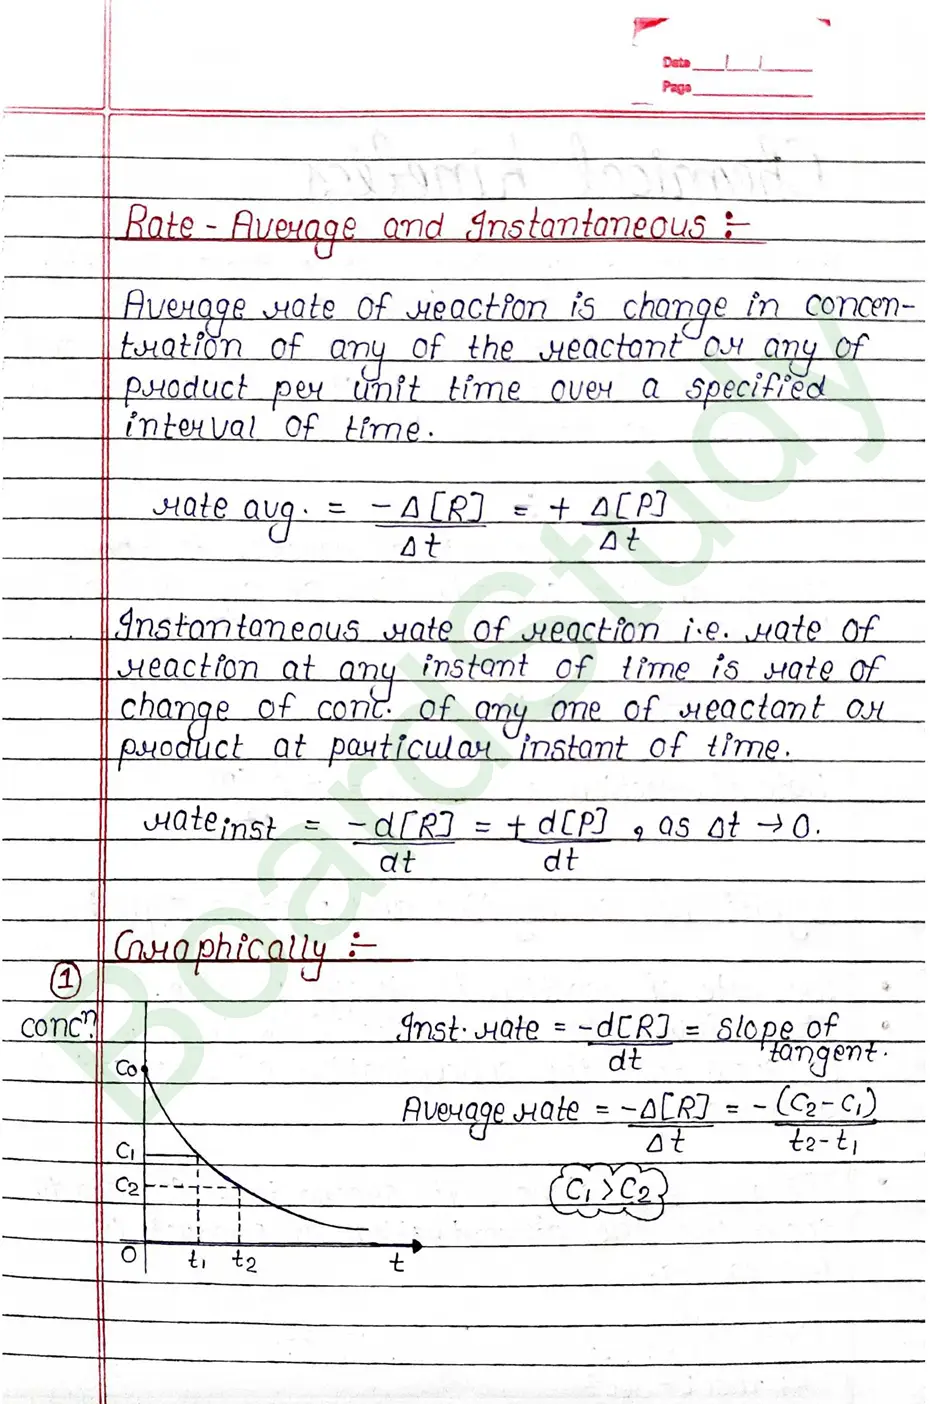 Date / /
Page
Chemical kinetics
Rate - Average and Instantaneous :-
Average rate of reaction is change in concen-
tration of any of the reactant or any of
product per unit time over a specified
interval of time.
rate avg. = -Δ[R]/Δt = + Δ[P]/Δt
Instantaneous rate of reaction i.e. rate of
reaction at any instant of time is rate of
change of conc. of any one of reactant or
product at particular instant of time.
rate inst = -d[R]/dt = + d[P]/dt , as Δt → 0.
Graphically :-
1
concⁿ.
Inst. rate = -d[R]/dt = slope of tangent.
C0
Average rate = -Δ[R]/Δt = -(C2-C1)/t2-t1
C1
C2
C1 > C2
0 t1 t2 t
BoardStudy